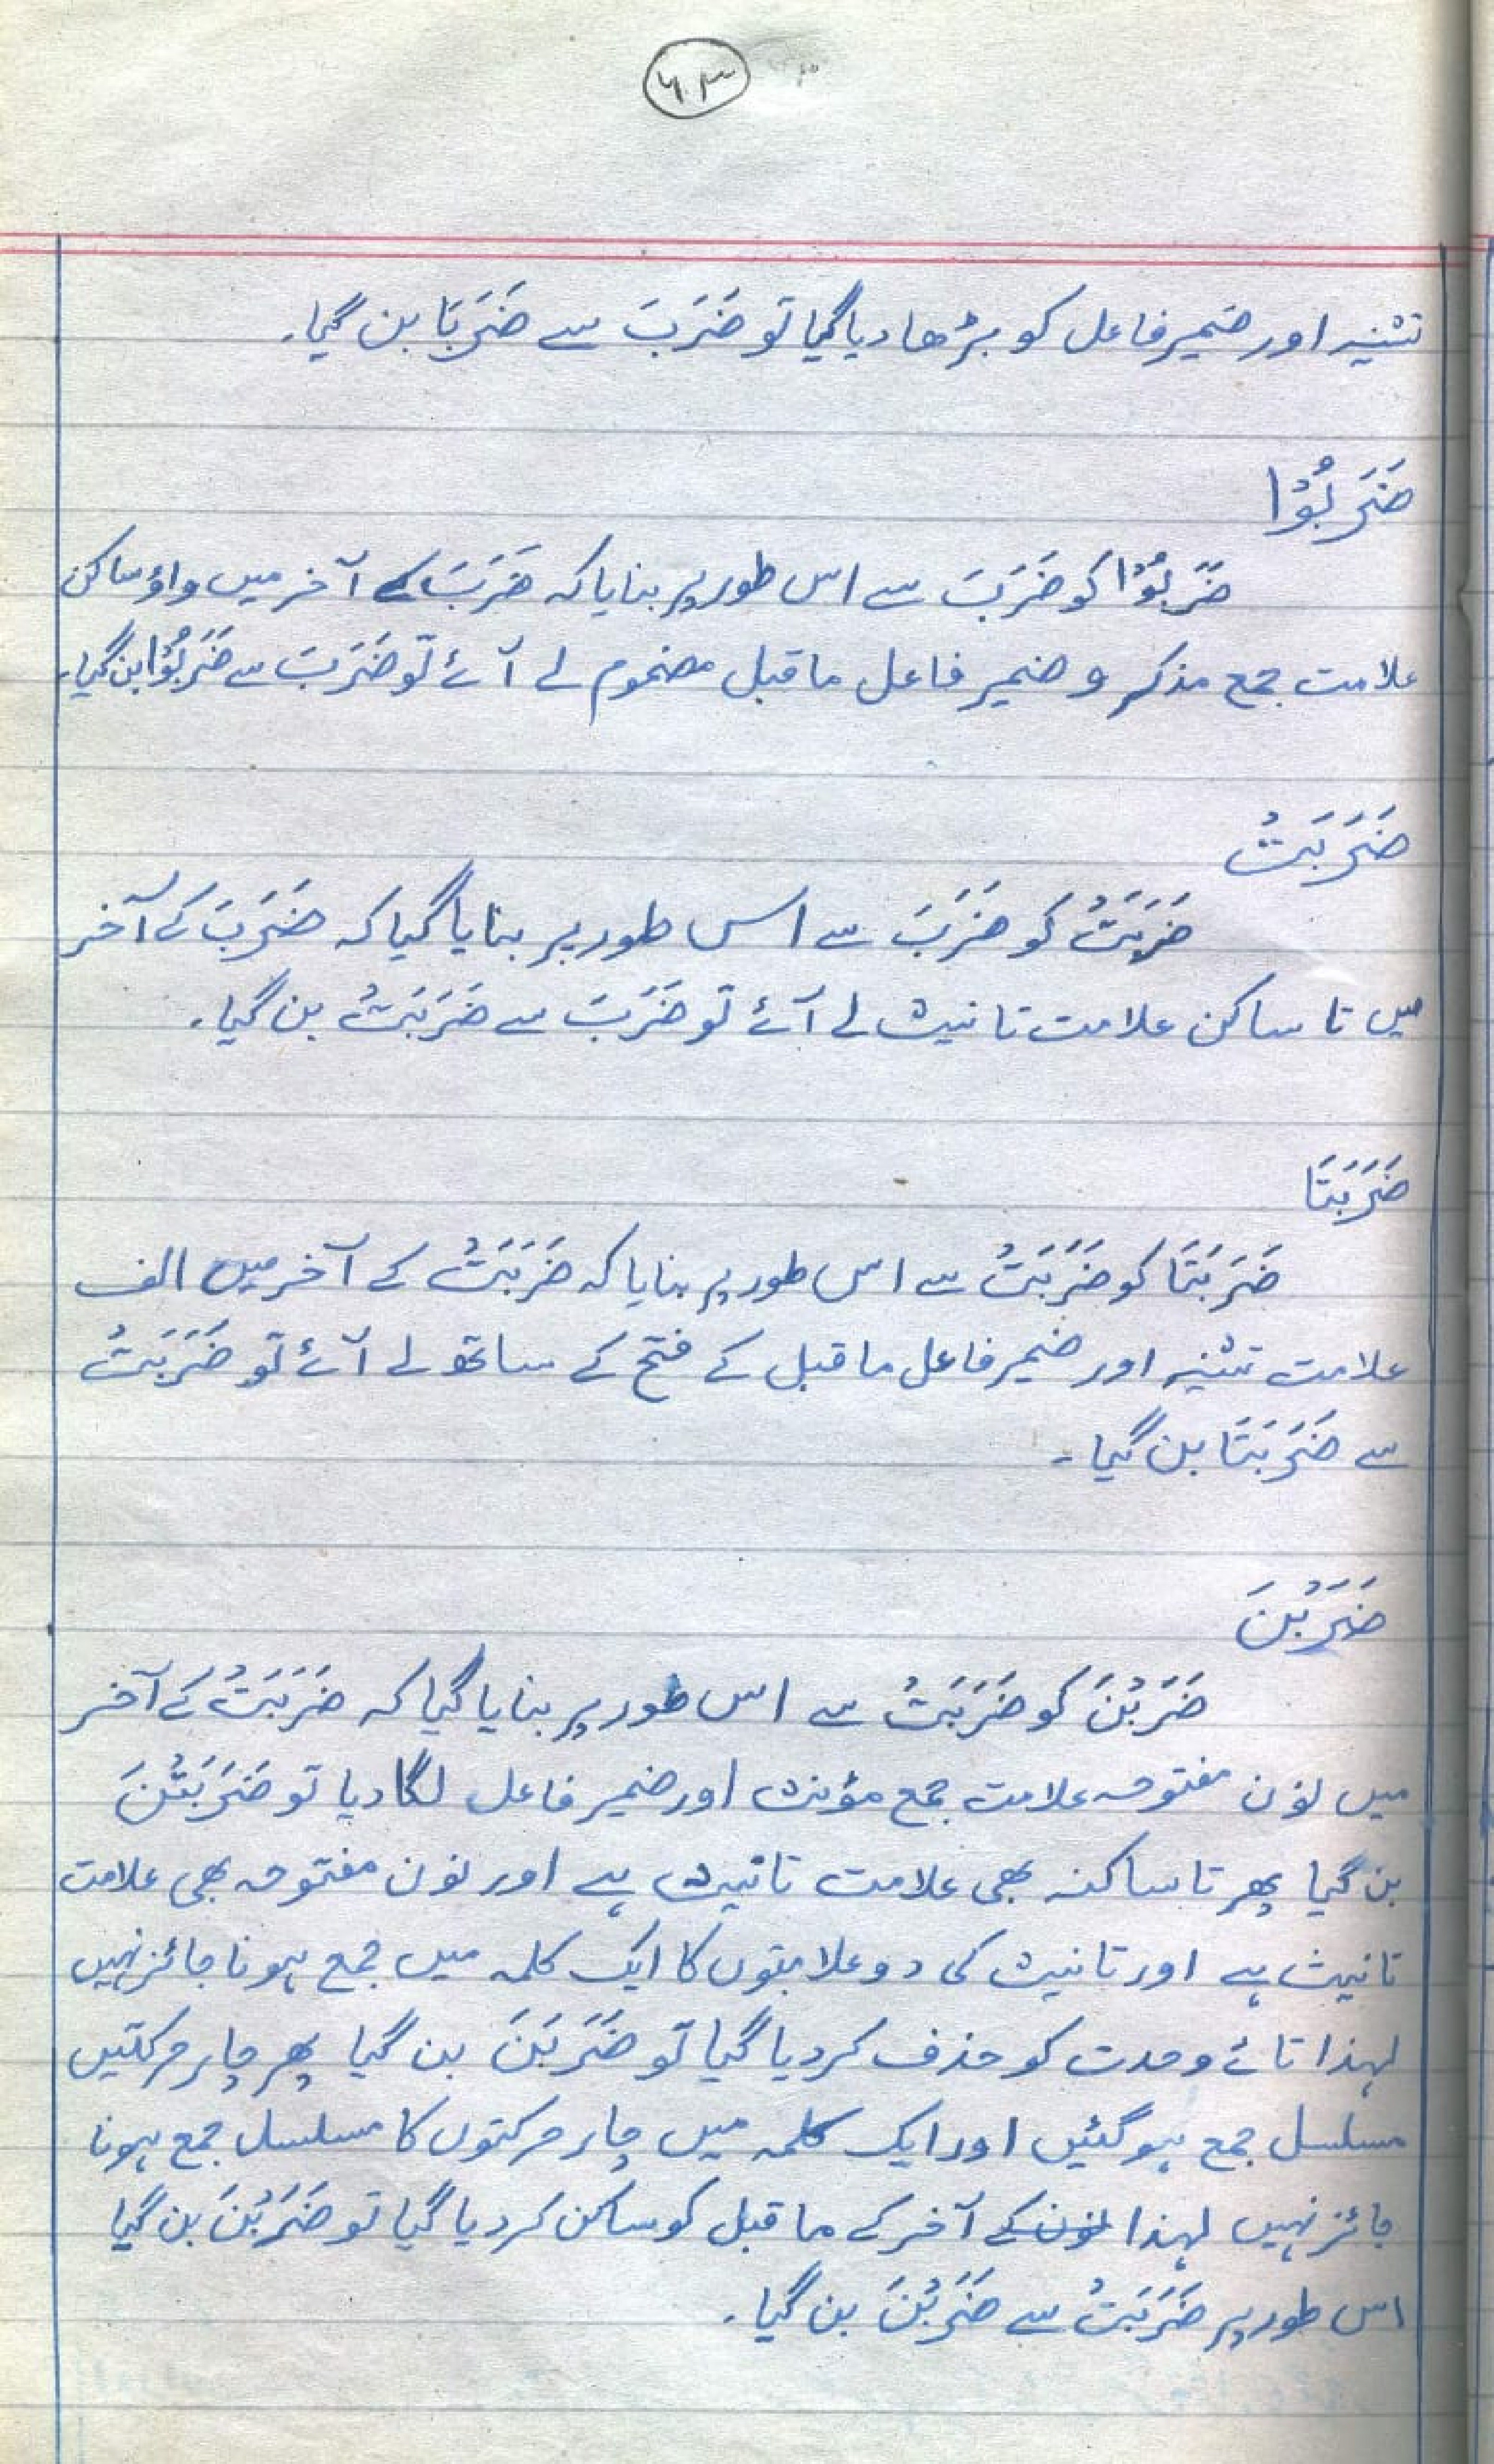 ۶۳
تثنیہ اور ضمیر فاعل کو بڑھا دیا گیا تو ضَرَبَ سے ضَرَبَا بن گیا۔
ضَرَبُوْا
ضَرَبُوْا کو ضَرَبَ سے اس طور پر بنایا کہ ضَرَبَ کے آخر میں واؤ ساکن
علامت جمع مذکر و ضمیر فاعل ما قبل مضموم لے آئے تو ضَرَبَ سے ضَرَبُوْا بن گیا۔
ضَرَبَتْ
ضَرَبَتْ کو ضَرَبَ سے اس طور پر بنایا گیا کہ ضَرَبَ کے آخر
میں تا ساکن علامت تانیث لے آئے تو ضَرَبَ سے ضَرَبَتْ بن گیا۔
ضَرَبَتَا
ضَرَبَتَا کو ضَرَبَتْ سے اس طور پر بنایا کہ ضَرَبَتْ کے آخر میں الف
علامت تثنیہ اور ضمیر فاعل ما قبل کے فتح کے ساتھ لے آئے تو ضَرَبَتْ
سے ضَرَبَتَا بن گیا۔
ضَرَبْنَ
ضَرَبْنَ کو ضَرَبَتْ سے اس طور پر بنایا گیا کہ ضَرَبَتْ کے آخر
میں نون مفتوحہ علامت جمع مؤنث اور ضمیر فاعل لگا دیا تو ضَرَبَتْنَ
بن گیا پھر تا ساکنہ بھی علامت تانیث ہے اور نون مفتوحہ بھی علامت
تانیث ہے اور تانیث کی دو علامتوں کا ایک کلمہ میں جمع ہونا جائز نہیں
لہذا تائے وحدت کو حذف کر دیا گیا تو ضَرَبَنَ بن گیا پھر چار حرکتیں
مسلسل جمع ہو گئیں اور ایک کلمہ میں چار حرکتوں کا مسلسل جمع ہونا
جائز نہیں لہذا نون کے آخر کے ما قبل کو ساکن کر دیا گیا تو ضَرَبْنَ بن گیا
اس طور پر ضَرَبَتْ سے ضَرَبْنَ بن گیا۔